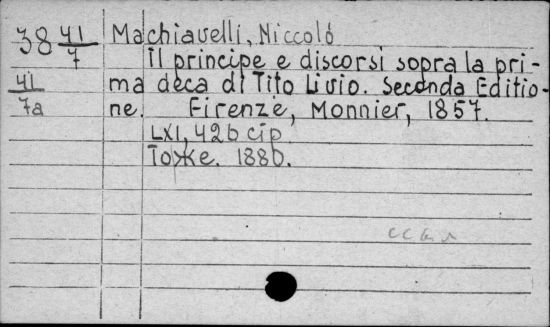 38 41/7 Machiavelli, Niccoló
Il principe e discorsi sopra la pri-
41/7a ma deca di Tito Livio. Seconda Editio-
ne. Firenze, Monnier, 1857.
LXI, 426 стр
Тоже. 1886.